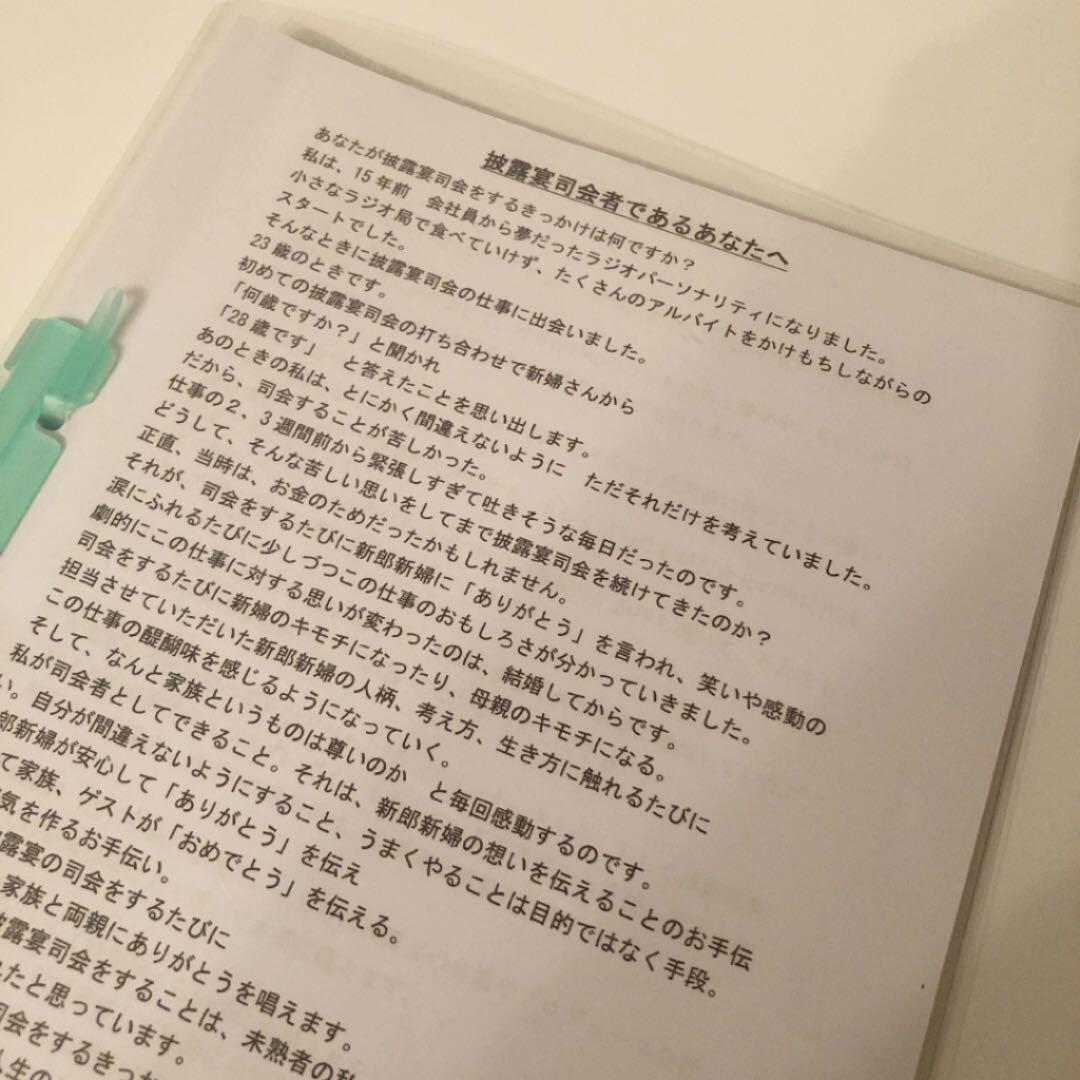 披露宴司会者であるあなたへ
あなたが披露宴司会をするきっかけは何ですか？
私は、15年前　会社員から夢だったラジオパーソナリティになりました。
小さなラジオ局で食べていけず、たくさんのアルバイトをかけもちしながらの
スタートでした。
そんなときに披露宴司会の仕事に出会いました。
23歳のときです。
初めての披露宴司会の打ち合わせで新婦さんから
「何歳ですか？」と聞かれ
「28歳です」　と答えたことを思い出します。
あのときの私は、とにかく間違えないように　ただそれだけを考えていました。
だから、司会することが苦しかった。
仕事の２、３週間前から緊張しすぎて吐きそうな毎日だったのです。
どうして、そんな苦しい思いをしてまで披露宴司会を続けてきたのか？
正直、当時は、お金のためだったかもしれません。
それが、司会をするたびに新郎新婦に「ありがとう」を言われ、笑いや感動の
涙にふれるたびに少しづつこの仕事のおもしろさが分かっていきました。
劇的にこの仕事に対する思いが変わったのは、結婚してからです。
司会をするたびに新婦のキモチになったり、母親のキモチになる。
担当させていただいた新郎新婦の人柄、考え方、生き方に触れるたびに
この仕事の醍醐味を感じるようになっていく。
そして、なんと家族というものは尊いのか　と毎回感動するのです。
私が司会者としてできること。それは、新郎新婦の想いを伝えることのお手伝
い。自分が間違えないようにすること、うまくやることは目的ではなく手段。
郎新婦が安心して「ありがとう」を伝え
て家族、ゲストが「おめでとう」を伝える。
気を作るお手伝い。
露宴の司会をするたびに
家族と両親にありがとうを唱えます。
披露宴司会をすることは、未熟者の私
れたと思っています。
司会をするきっか
人生の